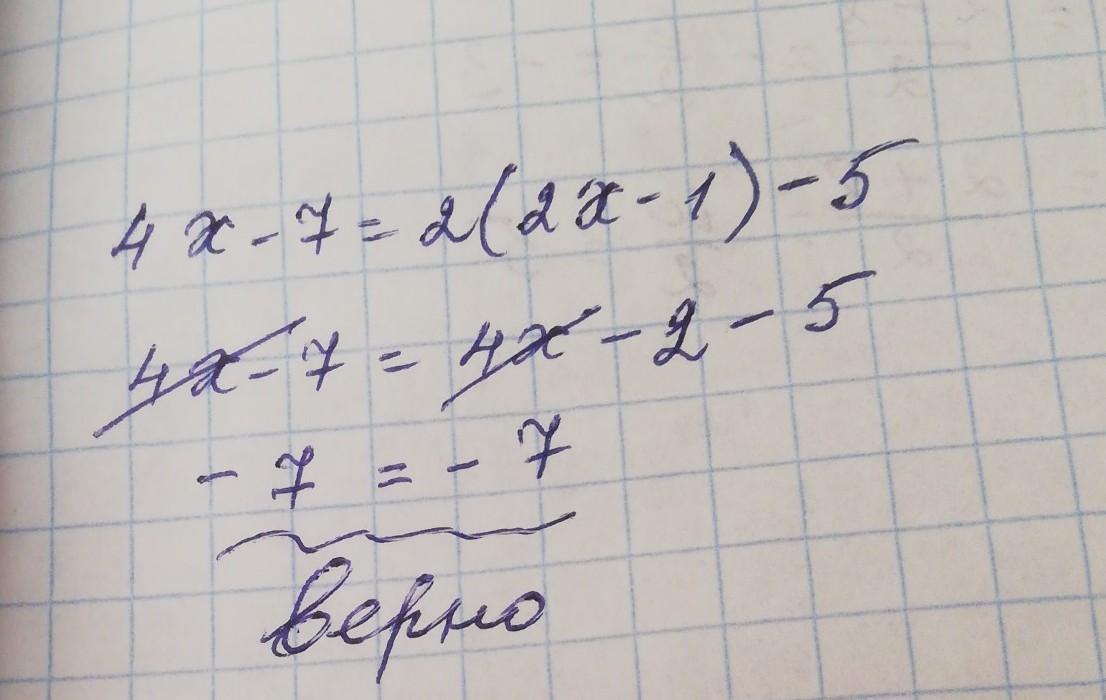 4x - 7 = 2(2x - 1) - 5
4x - 7 = 4x - 2 - 5
- 7 = - 7
верно